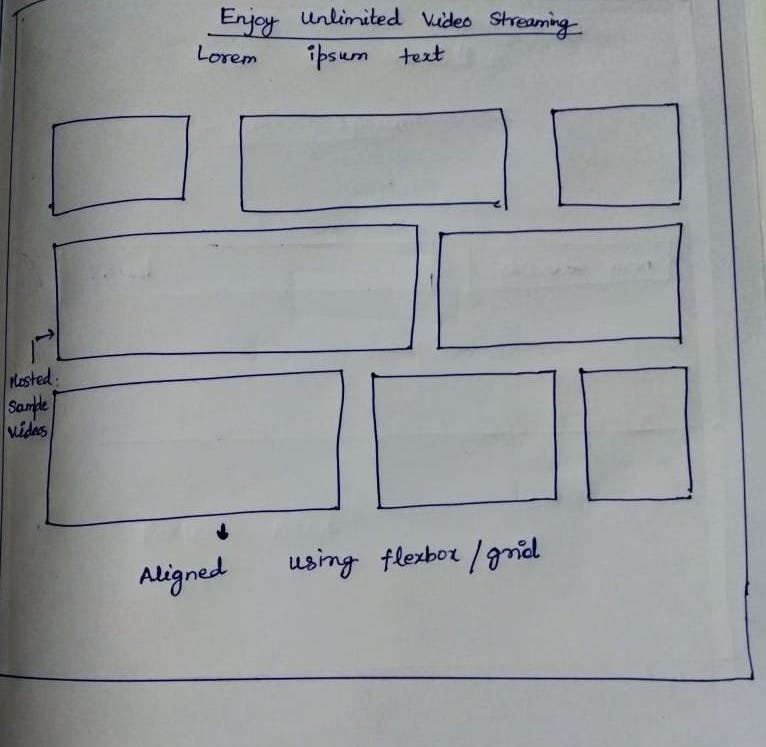 Enjoy Unlimited Video Streaming
Lorem ipsum text
Hosted
Sample
Videos
Aligned using flexbox/grid